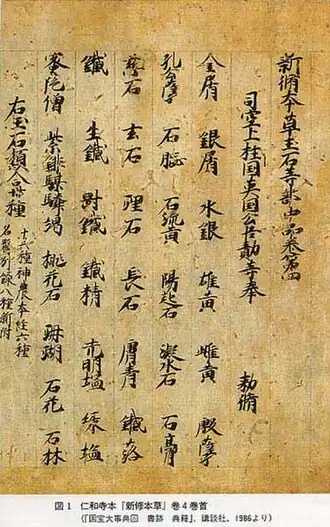 新脩本草玉石等部中品卷第四
司空上柱国英国公臣勣等奉 勅脩
金屑 銀屑 水銀 雄黄 雌黄 殷孽
孔公孽 石脳 石流黄 陽起石 凝水石 石膏
慈石 玄石 理石 長石 膚青 鐵落
鐵 生鐵 鐵 鐵精 光明塩 緑塩
蜜陀僧 紫鉚騏驎竭 桃花石 珊瑚 石花 石床
右玉石類合卅種
十六種神農本経 六種
名醫別録 八種新附
図1 仁和寺本『新修本草』巻4巻首
(『国宝大事典 書跡 典籍』、講談社、1986より)